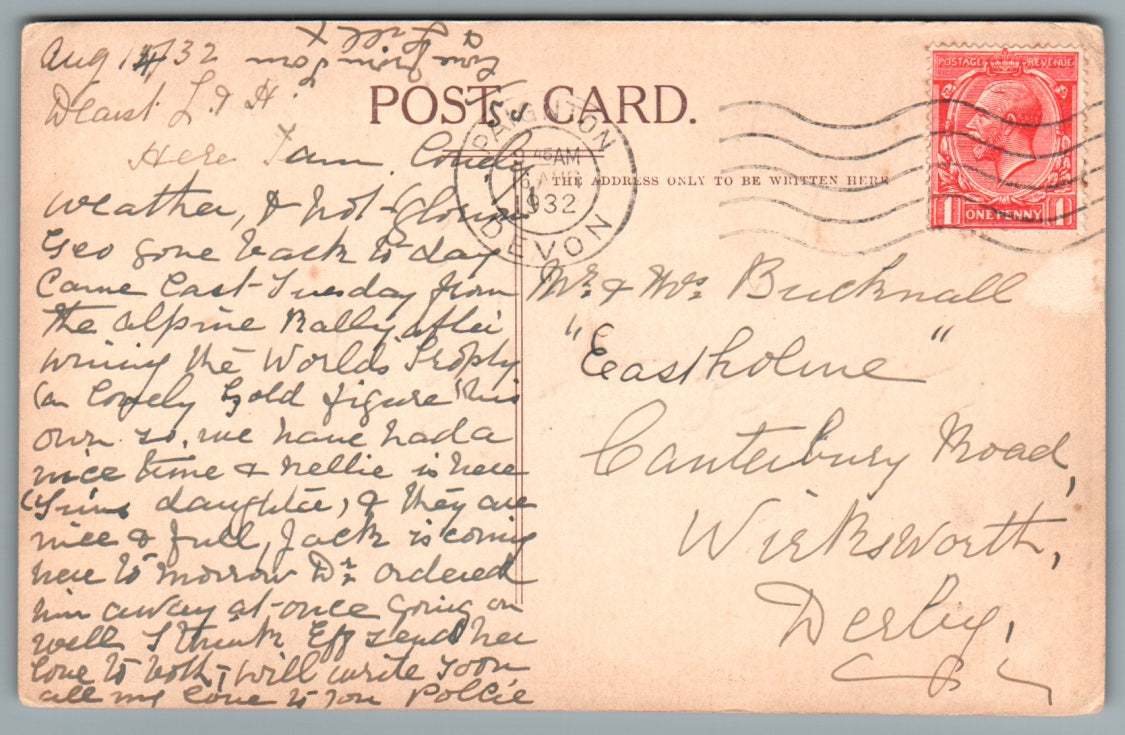 Aug 14/32
Dearst L & H.
POST CARD.
THE ADDRESS ONLY TO BE WRITTEN HERE
PAIGNTON
9 45AM
AUG
1932
DEVON
POSTAGE REVENUE
1 ONE PENNY 1
Here I am Lovely
weather, & hot-glorious
Geo gone back to day
Came Last-Tuesday from
the alpine Rally after
wining the World's Trophy
(a lovely Gold figure) his
own so, we have had a
nice time & Nellie is here
daughter, & they are
nice & full, Jack is coming
here to morrow Dr. ordered
him away at-once Going on
well I think Eff sends her
love to both, I will write soon
all my love to you Pollie
Mr. & Mrs. Bucknall
"Eastholme"
Canterbury Road,
Wirksworth,
Derby.